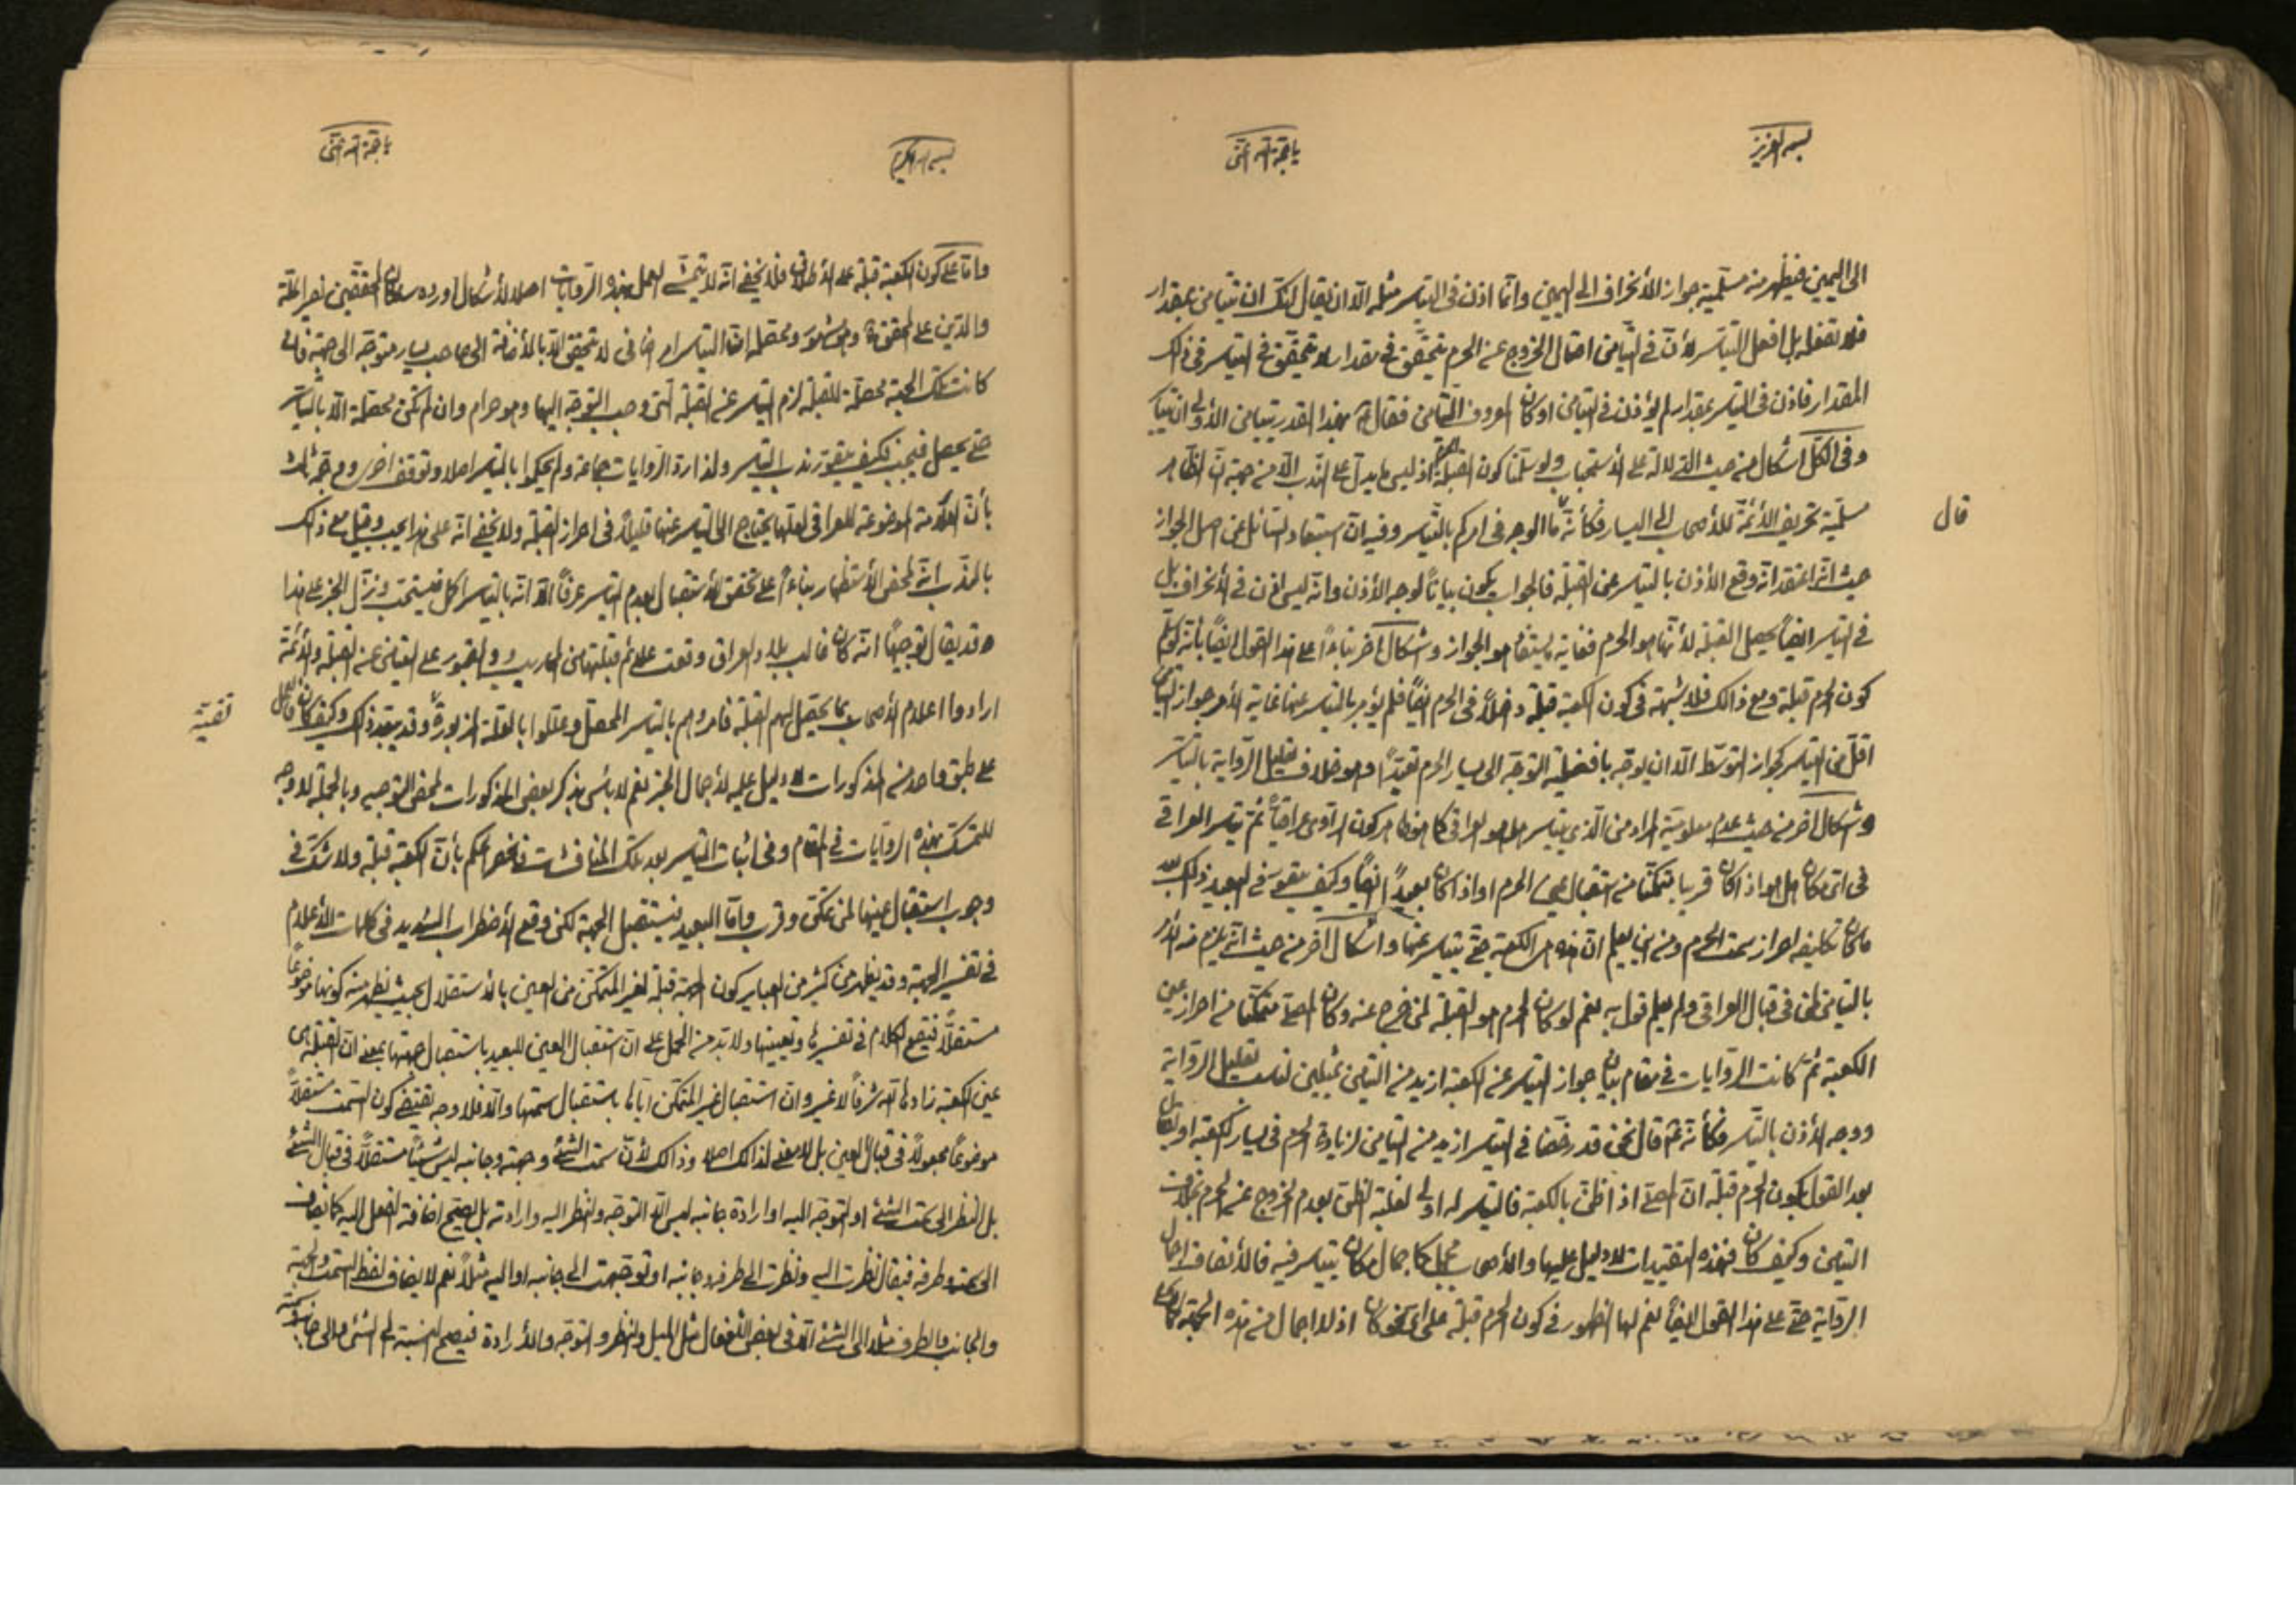 بسمه العزيز
يا حجة الله اغثنى
الى اليمين فيظهر منه مسلمية جواز الأنحراف الى اليمين وانّما اذن فى التياسر مثله الّا ان يقال لعلّك ان تتيامن بمقدار
فلا تفعله بل افعل التّياسر لأن فى التّيامن احتمال الخروج عن الحرم يتحقّق فى مقدار لا يتحقّق فى التياسر فى ذلك
المقدار فاذن فى التياسر بمقدار لم يؤذن فى التيامن او كان المعروف التّيامن فقال بهذا القدر تيامن
وفى الكلّ اشكال من حيث الدّلالة على الأستحباب ولو سلّمنا كون القبلة الحرم اذ ليس ما يدلّ على النّدب الّا من جهة انّ الظّاهر
مسلميّة تحريف الأئمّة للأصحاب الى اليسار فكأنّه ما الوجه فى امركم بالتّياسر وفيه انّ استبعاد السّائل عن اصل الجواز
قال
حيث انّه اعتقد انّه وقع الأذن بالتياسر عن القبلة فالجواب يكون بياناً لوجه الأذن وانّه ليس اذن فى الأنحراف بل
فى التياسر ايضاً يحصل القبلة لأنّها هو الحرم فغاية يستفاد هو الجواز واشكال آخر بناءاً على هذا القول ايضاً بأنّه لو سلّم
كون الحرم قبلة ومع ذلك فلا شبهة فى كون الكعبة قبلة داخلاً فى الحرم ايضاً فلم يؤمر بالتياسر عنها غاية الأمر جواز التياسر
اقلّ من التياسر كجواز التوسّط الّا ان يوجّه بافضلية التوجّه الى يسار الحرم تعبّداً وهو خلاف تعليل الرّواية بالتياسر
واشكال آخر من حيث عدم معلوميّة المراد من الّذى يتياسر هل هو العراقى كما هو ظاهر كون الراوى عراقيّاً ثمّ تياسر العراقى
فى اىّ مكان هل هو اذا كان قريبا متمكّنا من استقبال عين الحرم او اذا كان بعيداً ايضاً وكيف يتقوّى فى البعيد ذلك بعد
ما كان تكليفه احراز سمت الحرم ومن اين يعلم انّ هذه هى الكعبة حتّى يتياسر عنها واشكال آخر من حيث انّه يلزم منه الأمر
بالتيامن لمن فى قبال العراقى ولم يعلم قول به نعم لو كان الحرم هو القبلة لمن خرج عنه وكان المصلّى متمكّنا من احراز عين
الكعبة ثمّ كانت الرّوايات فى مقام بيان جواز التياسر عن الكعبة ازيد من التيامن تعليل الرّواية
ووجه الأذن بالتّياسر فكأنّه قال نحن قد رخّصنا فى التياسر ازيد من التيامن لزيادة الحرم فى يسار الكعبة او يقال
بعد القول بكون الحرم قبلة انّ المصلّى اذا ظنّ بالكعبة فالتياسر له اولى لغلبة الظنّ بعدم الخروج عن الحرم بخلاف
التيامن وكيف كان فهذه التقييدات لا دليل عليها والأصحاب مجمل كاجمال مكان يتياسر فيه فالأنصاف اجمال
الرّواية حتّى على هذا القول ايضاً نعم لها الظهور فى كون الحرم قبلة على اىّ نحو كان اذ لا اجمال من هذه الجهة
بسمه الكريم
يا حجة الله اغثنى
وامّا على كون الكعبة قبلة على الأطلاق فلا يخفى انّه لا يتمشّى العمل بهذه الرّوايات اصلا لأشكال اورده سلطان المحقّقين نصير الملّة
والدّين على المحقّق وهو مشهور ومحصّله انّ التياسر امر اضافى لا يتحقّق الّا بالأضافة الى صاحب يسار متوجّه الى جهة فان
كانت تلك الجهة محصّلة للقبلة لزم التياسر عن القبلة الّتى وجب التوجّه اليها وهو حرام وان لم تكن محصّلة الّا بالتياسر
حتّى يحصل فيجب فكيف يتصوّر ندب التياسر ولذا ردّ الرّوايات جماعة ولم يحكموا بالتياسر اصلا وتوقّف اخرى ووجّه ثالث
بأنّ العلامة الموضوعة للعراقى لعلّها يحتاج الى التياسر عنها قليلاً فى احراز القبلة ولا يخفى انّه على هذا يجب وقيل مع ذلك
بالنّدب انّه لمحض الأستظهار بناءاً على تحقّق الأستقبال بعدم التياسر عرفاً الّا انّه بالتياسر اكمل فيستحبّ ونزّل الخبر على هذا
وقد يقال توجيهاً انّه كان غالب بلاد العراق وقعت علائم قبلتها من المحاريب والقبور على التيامن عن القبلة والأئمّة
ارادوا اعلام الأصحاب بما يحصل لهم القبلة فامروهم بالتياسر المحصّل وعلّلوا بالعلّة المزبورة وكيف كان فالحمل
تقيّة
على طبق واحد من المذكورات لا دليل عليه لأجمال الخبر نعم لا بأس بذكر بعض المذكورات لمحض التوجيه وبالجملة لا وجه
للتمسّك بهذه الروايات فى المقام وفى اثبات التياسر بعد تلك المناقشات فانحصر الحكم بأنّ الكعبة قبلة ولا شكّ فى
وجوب استقبال عينها لمن تمكّن وقرب وامّا البعيد فيستقبل الجهة لكن وقع الأضطراب الشديد فى كلمات الأعلام
فى تفسير الجهة وقد يظهر من كثير من التعابير كون الجهة قبلة لغير المتمكّن من العين بالأستقلال بحيث يظهر منه كونها موضوعاً
مستقلاًّ فيقع الكلام فى تفسيرها وتعيينها ولا بدّ من الحمل على انّ استقبال العين للبعيد باستقبال جهتها بمعنى انّ القبلة هى
عين الكعبة زادها الله شرفاً لا غير وانّ استقبال غير المتمكّن ايّاها باستقبال سمتها والّا فلا وجه يقتضى كون السّمت مستقلاًّ
موضوعاً مجعولاً فى قبال العين بل لا معنى لذلك اصلا وذلك لأنّ سمت الشّئ وجهته وجانبه ليس شيئاً مستقلاًّ فى قبال الشّئ
بل النظر الى سمت الشّئ او التوجّه اليه او ارادة جانبه ليس الّا التوجّه والنظر اليه وارادته بل يصحّ اضافة الفعل اليه كما يضاف
الى سمته وطرفه فيقال نظرت اليه ونظرت الى طرفه وجانبه او توجّهت الى جانبه او اليه مثلاً نعم لا يضاف لفظ السّمت والجهة
والجانب والطرف مثلا الى الشّئ الّا فى بعض الأفعال مثل الميل والنظر والتوجّه والأرادة فيصحّ النسبة الى الشّئ والى جانبه وسمته